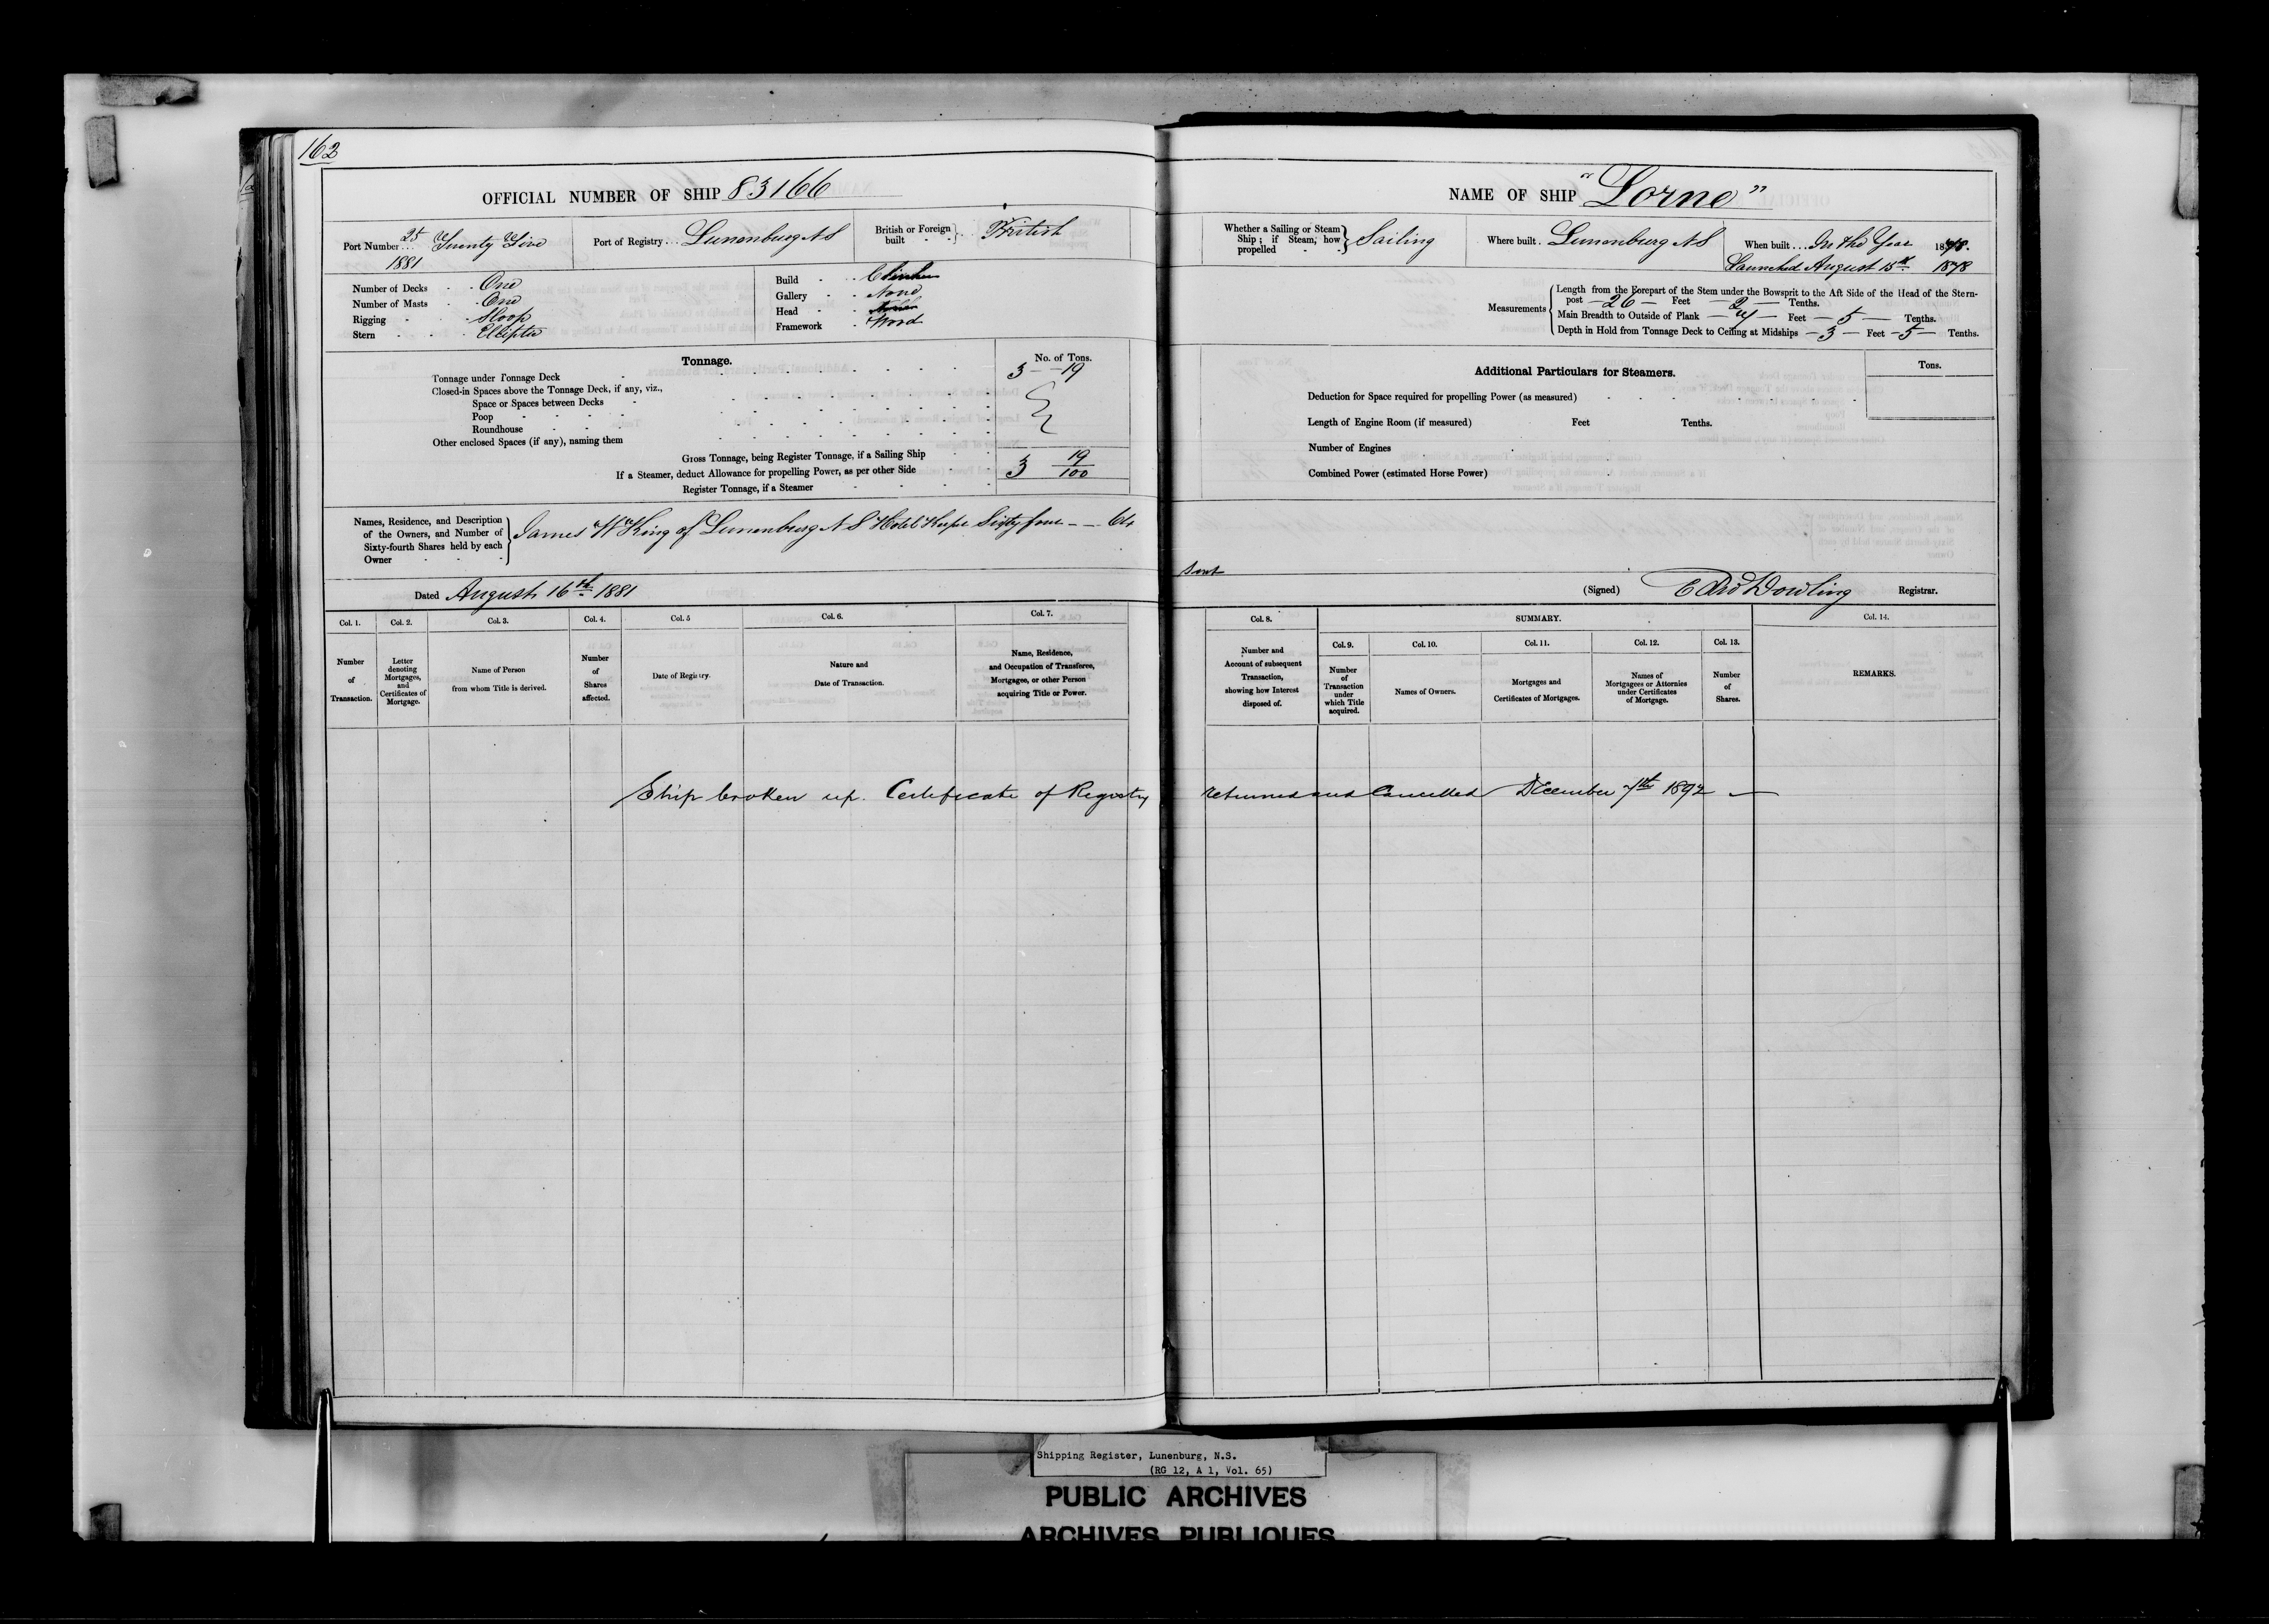 162
OFFICIAL NUMBER OF SHIP 83166
Port Number 25 Twenty Five
1881
Port of Registry Lunenburg N S
British or Foreign built British
Number of Decks One
Number of Masts One
Rigging Sloop
Stern Elliptic
Build Clinker
Gallery None
Head
Framework Wood
Tonnage.
No. of Tons.
Tonnage under Tonnage Deck 3 19
Closed-in Spaces above the Tonnage Deck, if any, viz.,
Space or Spaces between Decks
Poop
Roundhouse
Other enclosed Spaces (if any), naming them
Gross Tonnage, being Register Tonnage, if a Sailing Ship
If a Steamer, deduct Allowance for propelling Power, as per other Side 3 19/100
Register Tonnage, if a Steamer
Names, Residence, and Description of the Owners, and Number of Sixty-fourth Shares held by each Owner
James "W" King of Lunenburg N S Hotel Keeper Sixty four - - 64
Dated August 16th 1881
Col. 1. Col. 2. Col. 3. Col. 4. Col. 5 Col. 6. Col. 7.
Number of Transaction.
Letter denoting Mortgages, and Certificates of Mortgage.
Name of Person from whom Title is derived.
Number of Shares affected.
Date of Registry.
Nature and Date of Transaction.
Name, Residence, and Occupation of Transferee, Mortgagee, or other Person acquiring Title or Power.
NAME OF SHIP "Lorne"
Whether a Sailing or Steam Ship; if Steam, how propelled Sailing
Where built Lunenburg N S
When built In the Year 1878.
Launched August 15th 1878
Measurements
Length from the Forepart of the Stem under the Bowsprit to the Aft Side of the Head of the Stern-
post — 26 — Feet — 2 — Tenths.
Main Breadth to Outside of Plank Feet — 5 — Tenths.
Depth in Hold from Tonnage Deck to Ceiling at Midships — 3 — Feet — 5 — Tenths.
Additional Particulars for Steamers.
Tons.
Deduction for Space required for propelling Power (as measured)
Length of Engine Room (if measured) Feet Tenths.
Number of Engines
Combined Power (estimated Horse Power)
(Signed) Edwd Dowling Registrar.
Col. 8. SUMMARY. Col. 14.
Col. 9. Col. 10. Col. 11. Col. 12. Col. 13.
Number and Account of subsequent Transaction, showing how Interest disposed of.
Number of Transaction under which Title acquired.
Names of Owners.
Mortgages and Certificates of Mortgages.
Names of Mortgagees or Attornies under Certificates of Mortgage.
Number of Shares.
REMARKS.
Ship broken up. Certificate of Registry returned and Cancelled December 7th 1892 —
Shipping Register, Lunenburg, N.S.
(RG 12, A 1, Vol. 65)
PUBLIC ARCHIVES
ARCHIVES PUBLIQUES